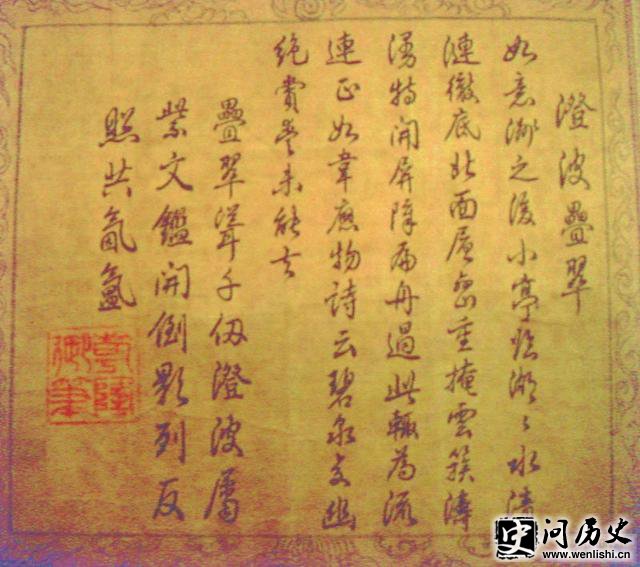 澄波疊翠
如意洲之後小亭臨湖々水清
漣徹底北面層巒重掩雲簇濤
湧特開屏障扁舟過此輒為流
連正如韋應物詩云碧泉交幽
絕賞愛未能去
疊翠聳千仞澄波屬
紫文鑑開倒影列反
照共氤氳
乾隆
御筆
问历史
www.wenlishi.cn